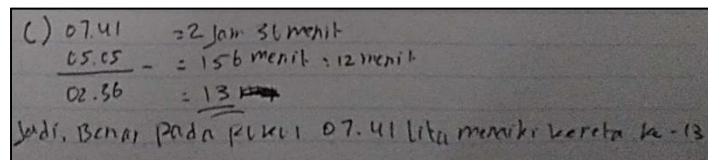 C) 07.41 = 2 Jam 36 menit
05.05 - = 156 menit : 12 menit
02.36 = 13
Jadi, Benar pada pukul 07.41 Lita memiki kereta ke-13